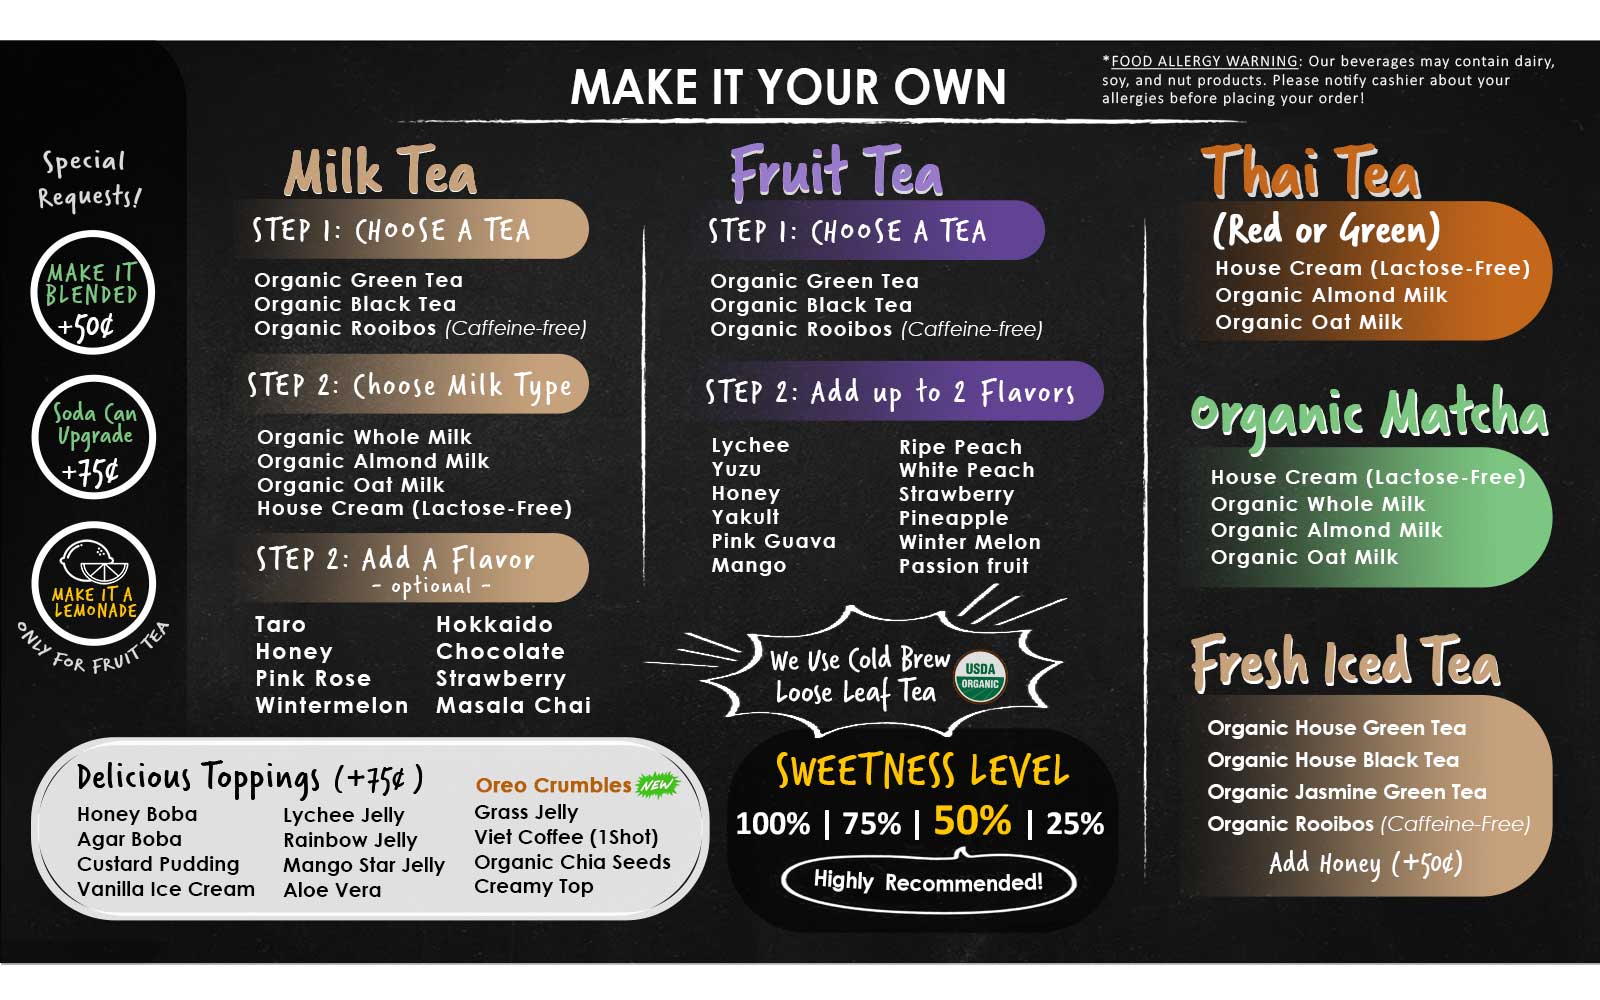 MAKE IT YOUR OWN
*FOOD ALLERGY WARNING: Our beverages may contain dairy,
soy, and nut products. Please notify cashier about your
allergies before placing your order!
Special
Requests!
MAKE IT
BLENDED
+50¢
Soda Can
Upgrade
+75¢
MAKE IT A
LEMONADE
ONLY FOR FRUIT TEA
Milk Tea
STEP 1: CHOOSE A TEA
Organic Green Tea
Organic Black Tea
Organic Rooibos (Caffeine-free)
STEP 2: Choose Milk Type
Organic Whole Milk
Organic Almond Milk
Organic Oat Milk
House Cream (Lactose-Free)
STEP 2: Add A Flavor
- optional -
Taro
Honey
Pink Rose
Wintermelon
Hokkaido
Chocolate
Strawberry
Masala Chai
Fruit Tea
STEP 1: CHOOSE A TEA
Organic Green Tea
Organic Black Tea
Organic Rooibos (Caffeine-free)
STEP 2: Add up to 2 Flavors
Lychee
Yuzu
Honey
Yakult
Pink Guava
Mango
Ripe Peach
White Peach
Strawberry
Pineapple
Winter Melon
Passion fruit
We Use Cold Brew
Loose Leaf Tea
USDA
ORGANIC
Thai Tea
(Red or Green)
House Cream (Lactose-Free)
Organic Almond Milk
Organic Oat Milk
Organic Matcha
House Cream (Lactose-Free)
Organic Whole Milk
Organic Almond Milk
Organic Oat Milk
Fresh Iced Tea
Organic House Green Tea
Organic House Black Tea
Organic Jasmine Green Tea
Organic Rooibos (Caffeine-Free)
Add Honey (+50¢)
Delicious Toppings (+75¢)
Honey Boba
Agar Boba
Custard Pudding
Vanilla Ice Cream
Lychee Jelly
Rainbow Jelly
Mango Star Jelly
Aloe Vera
Oreo Crumbles NEW
Grass Jelly
Viet Coffee (1Shot)
Organic Chia Seeds
Creamy Top
SWEETNESS LEVEL
100% | 75% | 50% | 25%
Highly Recommended!